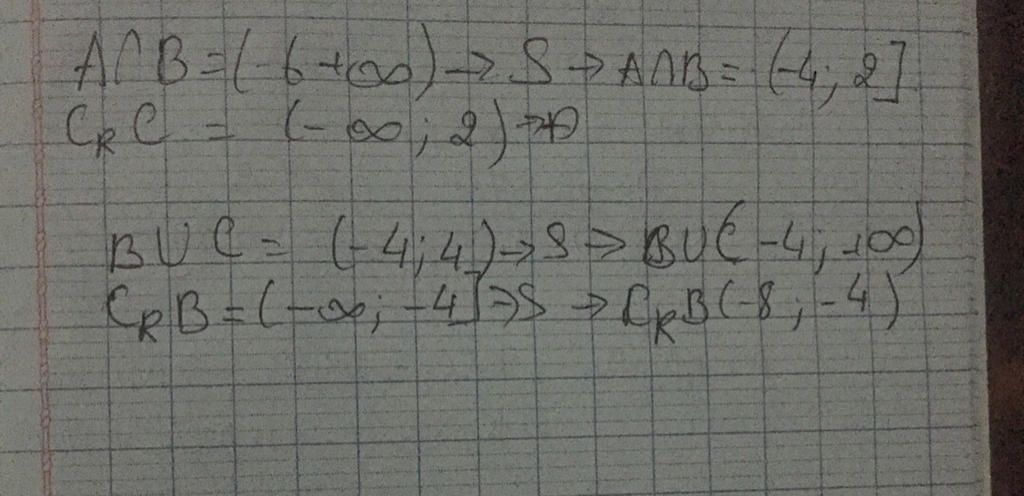 A∩B = (-6 +∞) → S → A∩B = (-4; 2]
C_R C = (-∞; 2) → Đ
B∪C = (-4; 4) → S → B∪C -4; +∞)
C_R B = (-∞; -4] → S → C_R B (-8; -4)